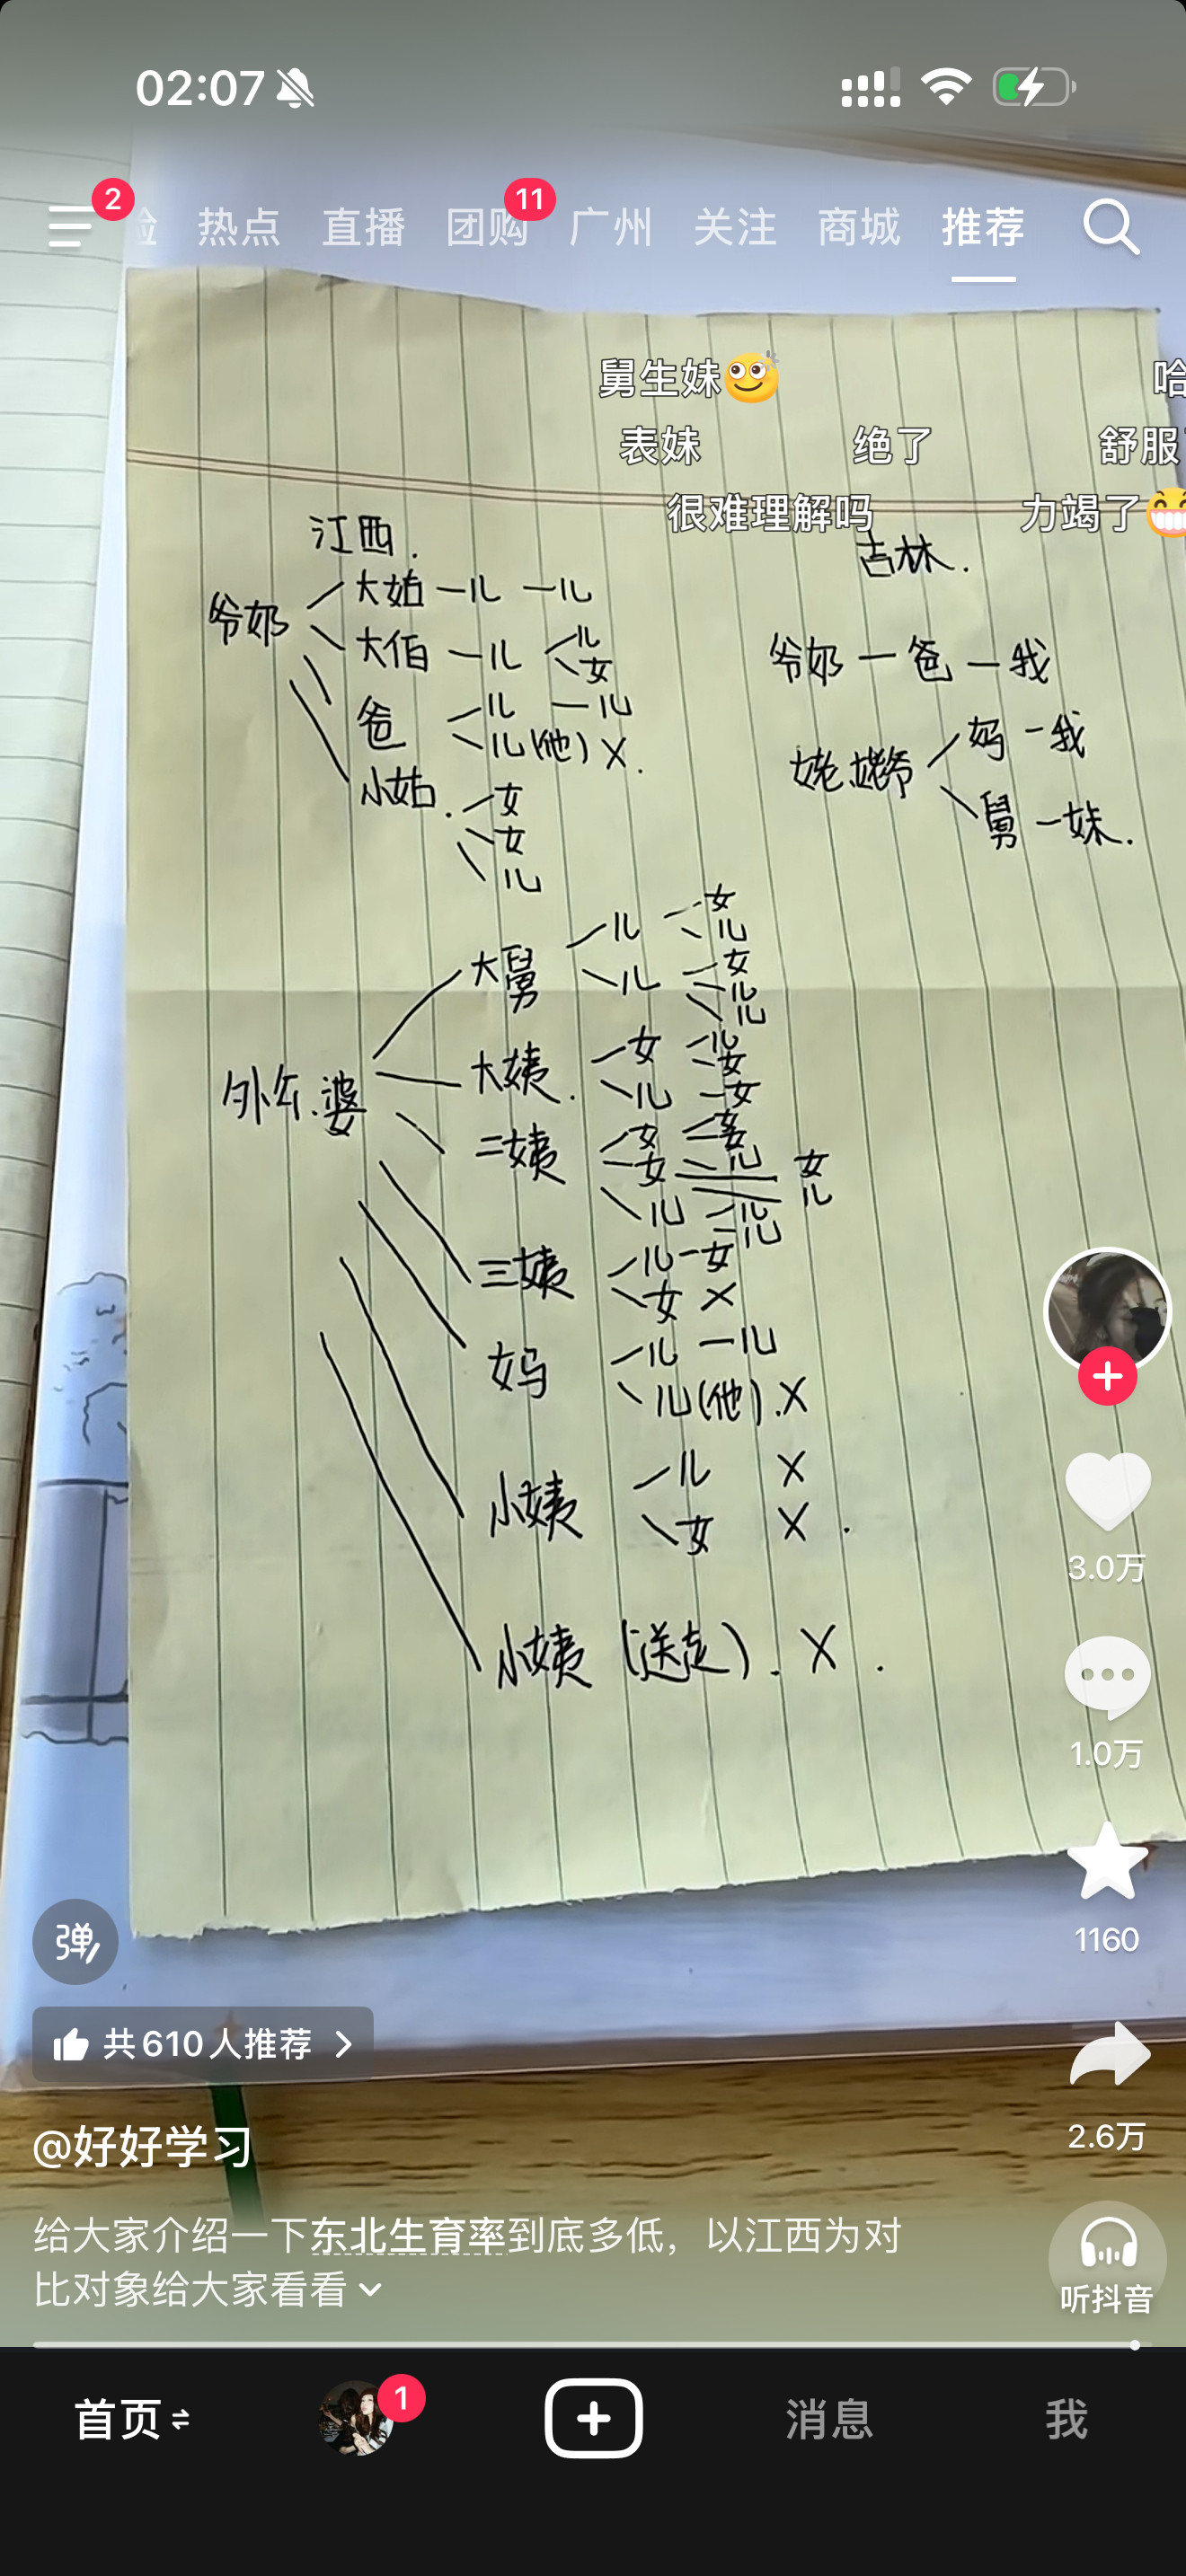 02:07
2
热点 直播 团购 11 广州 关注 商城 推荐
舅生妹
哈
表妹 绝了 舒服
很难理解吗 力竭了
江西.
爷奶
大姑 一儿 一儿
大伯 一儿 儿
女
爸 儿 一儿
儿(他) X.
小姑. 女
女
儿
吉林.
爷奶一爸一我
姥姥爷 妈一我
舅一妹.
外公.婆
大舅 儿 女
儿
儿 女
儿
儿
大姨. 女 儿
女
儿 女
二姨 女 女
女 儿 女
儿
儿 儿
儿
三姨 儿一女
女 X
妈 儿 一儿
儿(他).X
小姨 儿 X
女 X.
小姨(送走). X.
3.0万
1.0万
1160
2.6万
弹
共610人推荐
@好好学习
给大家介绍一下东北生育率到底多低，以江西为对
比对象给大家看看
听抖音
首页
1
消息
我